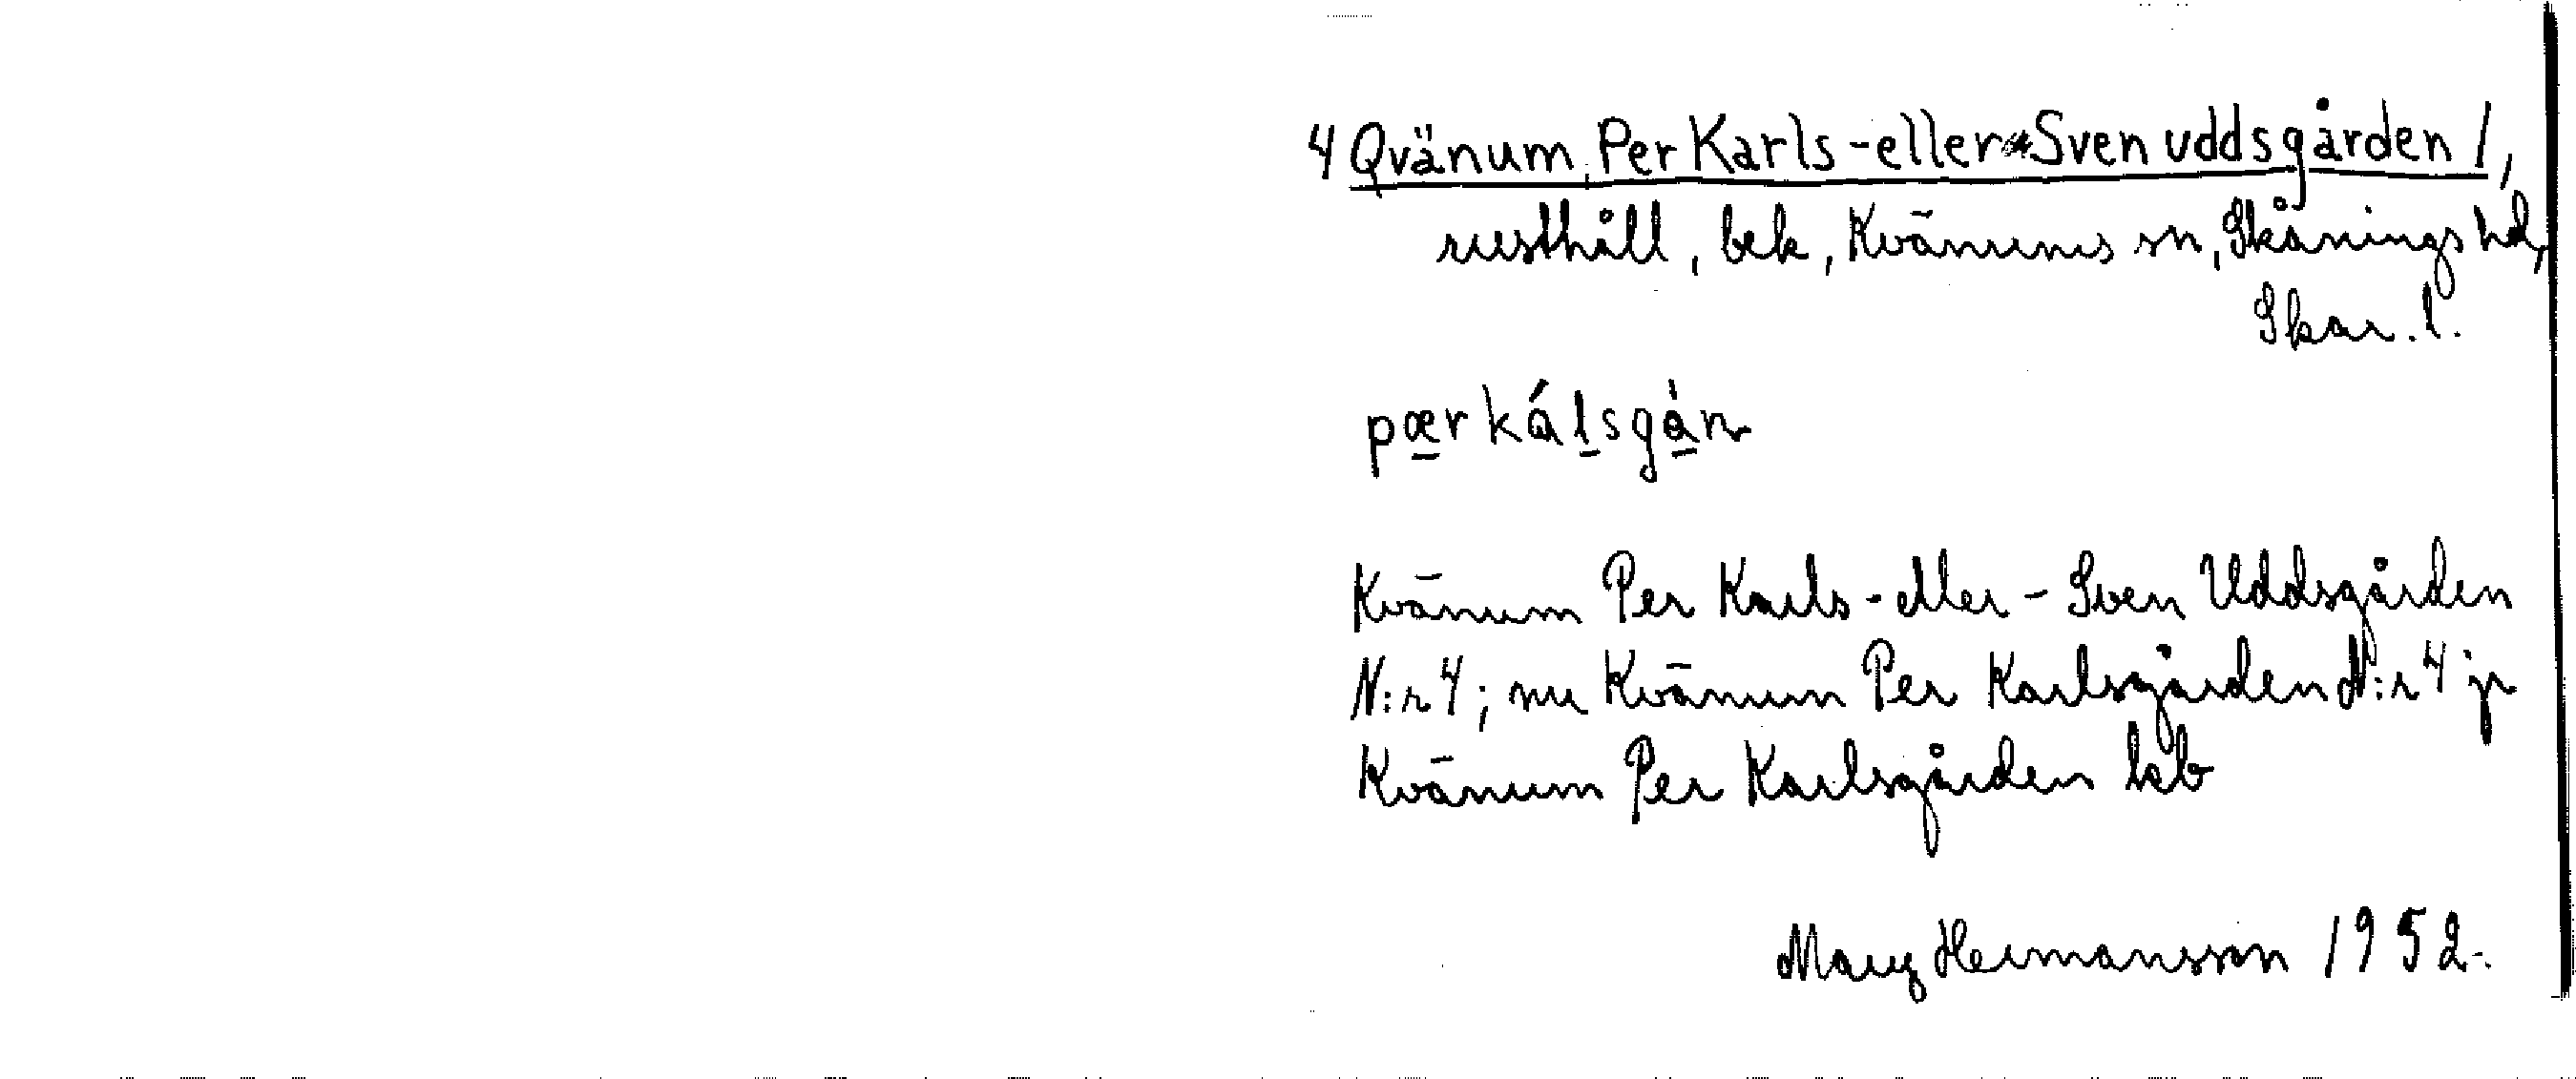 4 Qvänum, Per Karls-eller Sven uddsgården 1,
rusthåll, bek, Kvänums sn, Skånings hd,
Skar. l.
pærkálsgàn
Kvänum Per Karls-eller-Sven Uddsgården
N:r 4; nu Kvänum Per Karlsgården N:r 4 jr
Kvänum Per Karlsgården lab
Mary Hermansson 1952.